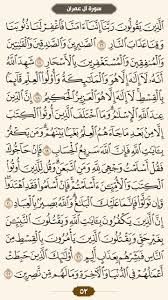 سورة آل عمران
ٱلَّذِينَ يَقُولُونَ رَبَّنَآ إِنَّنَآ ءَامَنَّا فَٱغۡفِرۡ لَنَا ذُنُوبَنَا
وَقِنَا عَذَابَ ٱلنَّارِ ١٦ ٱلصَّٰبِرِينَ وَٱلصَّٰدِقِينَ وَٱلۡقَٰنِتِينَ
وَٱلۡمُنفِقِينَ وَٱلۡمُسۡتَغۡفِرِينَ بِٱلۡأَسۡحَارِ ١٧ شَهِدَ ٱللَّهُ
أَنَّهُۥ لَآ إِلَٰهَ إِلَّا هُوَ وَٱلۡمَلَٰٓئِكَةُ وَأُوْلُواْ ٱلۡعِلۡمِ قَآئِمَۢا
بِٱلۡقِسۡطِۚ لَآ إِلَٰهَ إِلَّا هُوَ ٱلۡعَزِيزُ ٱلۡحَكِيمُ ١٨ إِنَّ ٱلدِّينَ
عِندَ ٱللَّهِ ٱلۡإِسۡلَٰمُۗ وَمَا ٱخۡتَلَفَ ٱلَّذِينَ أُوتُواْ ٱلۡكِتَٰبَ
إِلَّا مِنۢ بَعۡدِ مَا جَآءَهُمُ ٱلۡعِلۡمُ بَغۡيَۢا بَيۡنَهُمۡۗ وَمَن يَكۡفُرۡ
بِـَٔايَٰتِ ٱللَّهِ فَإِنَّ ٱللَّهَ سَرِيعُ ٱلۡحِسَابِ ١٩ فَإِنۡ حَآجُّوكَ
فَقُلۡ أَسۡلَمۡتُ وَجۡهِيَ لِلَّهِ وَمَنِ ٱتَّبَعَنِۗ وَقُل لِّلَّذِينَ أُوتُواْ
ٱلۡكِتَٰبَ وَٱلۡأُمِّيِّـۧنَ ءَأَسۡلَمۡتُمۡۚ فَإِنۡ أَسۡلَمُواْ فَقَدِ ٱهۡتَدَواْۖ
وَّإِن تَوَلَّوۡاْ فَإِنَّمَا عَلَيۡكَ ٱلۡبَلَٰغُۗ وَٱللَّهُ بَصِيرُۢ بِٱلۡعِبَادِ ٢٠
إِنَّ ٱلَّذِينَ يَكۡفُرُونَ بِـَٔايَٰتِ ٱللَّهِ وَيَقۡتُلُونَ ٱلنَّبِيِّـۧنَ
بِغَيۡرِ حَقّٖ وَيَقۡتُلُونَ ٱلَّذِينَ يَأۡمُرُونَ بِٱلۡقِسۡطِ مِنَ
ٱلنَّاسِ فَبَشِّرۡهُم بِعَذَابٍ أَلِيمٍ ٢١ أُوْلَٰٓئِكَ ٱلَّذِينَ حَبِطَتۡ
أَعۡمَٰلُهُمۡ فِي ٱلدُّنۡيَا وَٱلۡأٓخِرَةِ وَمَا لَهُم مِّن نَّٰصِرِينَ ٢٢
٥٢